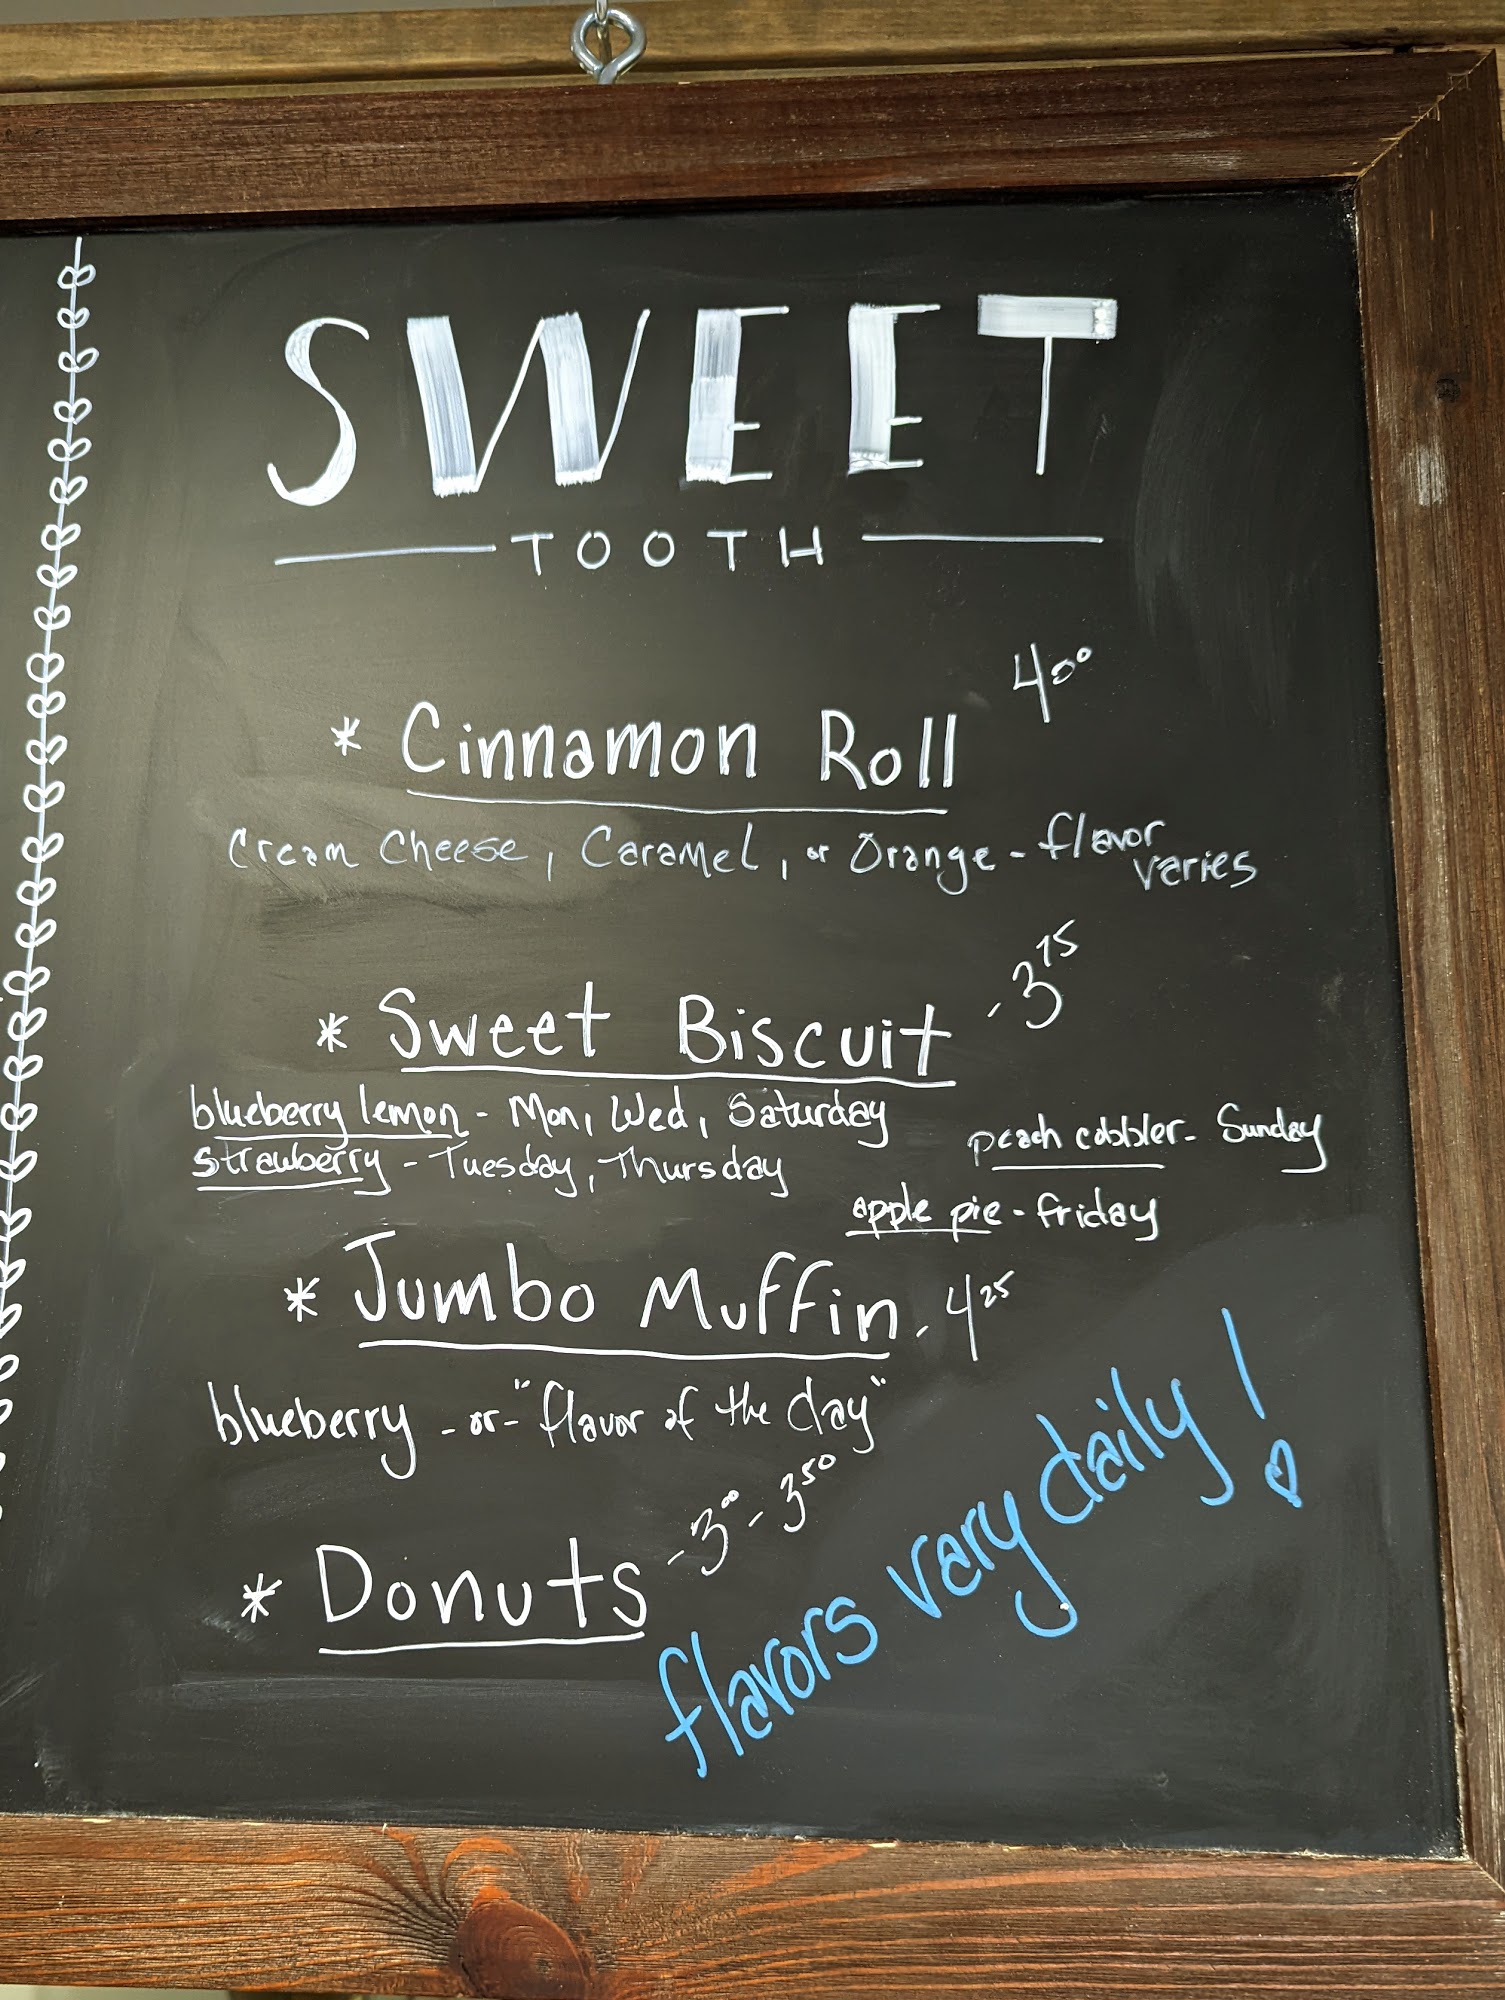 SWEET
TOOTH
* Cinnamon Roll 4⁰⁰
Cream Cheese, Caramel, or Orange - flavor
varies
* Sweet Biscuit - 3⁷⁵
blueberry lemon - Mon, Wed, Saturday
strawberry - Tuesday, Thursday
peach cobbler - Sunday
apple pie - friday
* Jumbo Muffin - 4²⁵
blueberry - or - "flavor of the day"
* Donuts - 3⁰⁰ - 3⁵⁰
flavors vary daily!